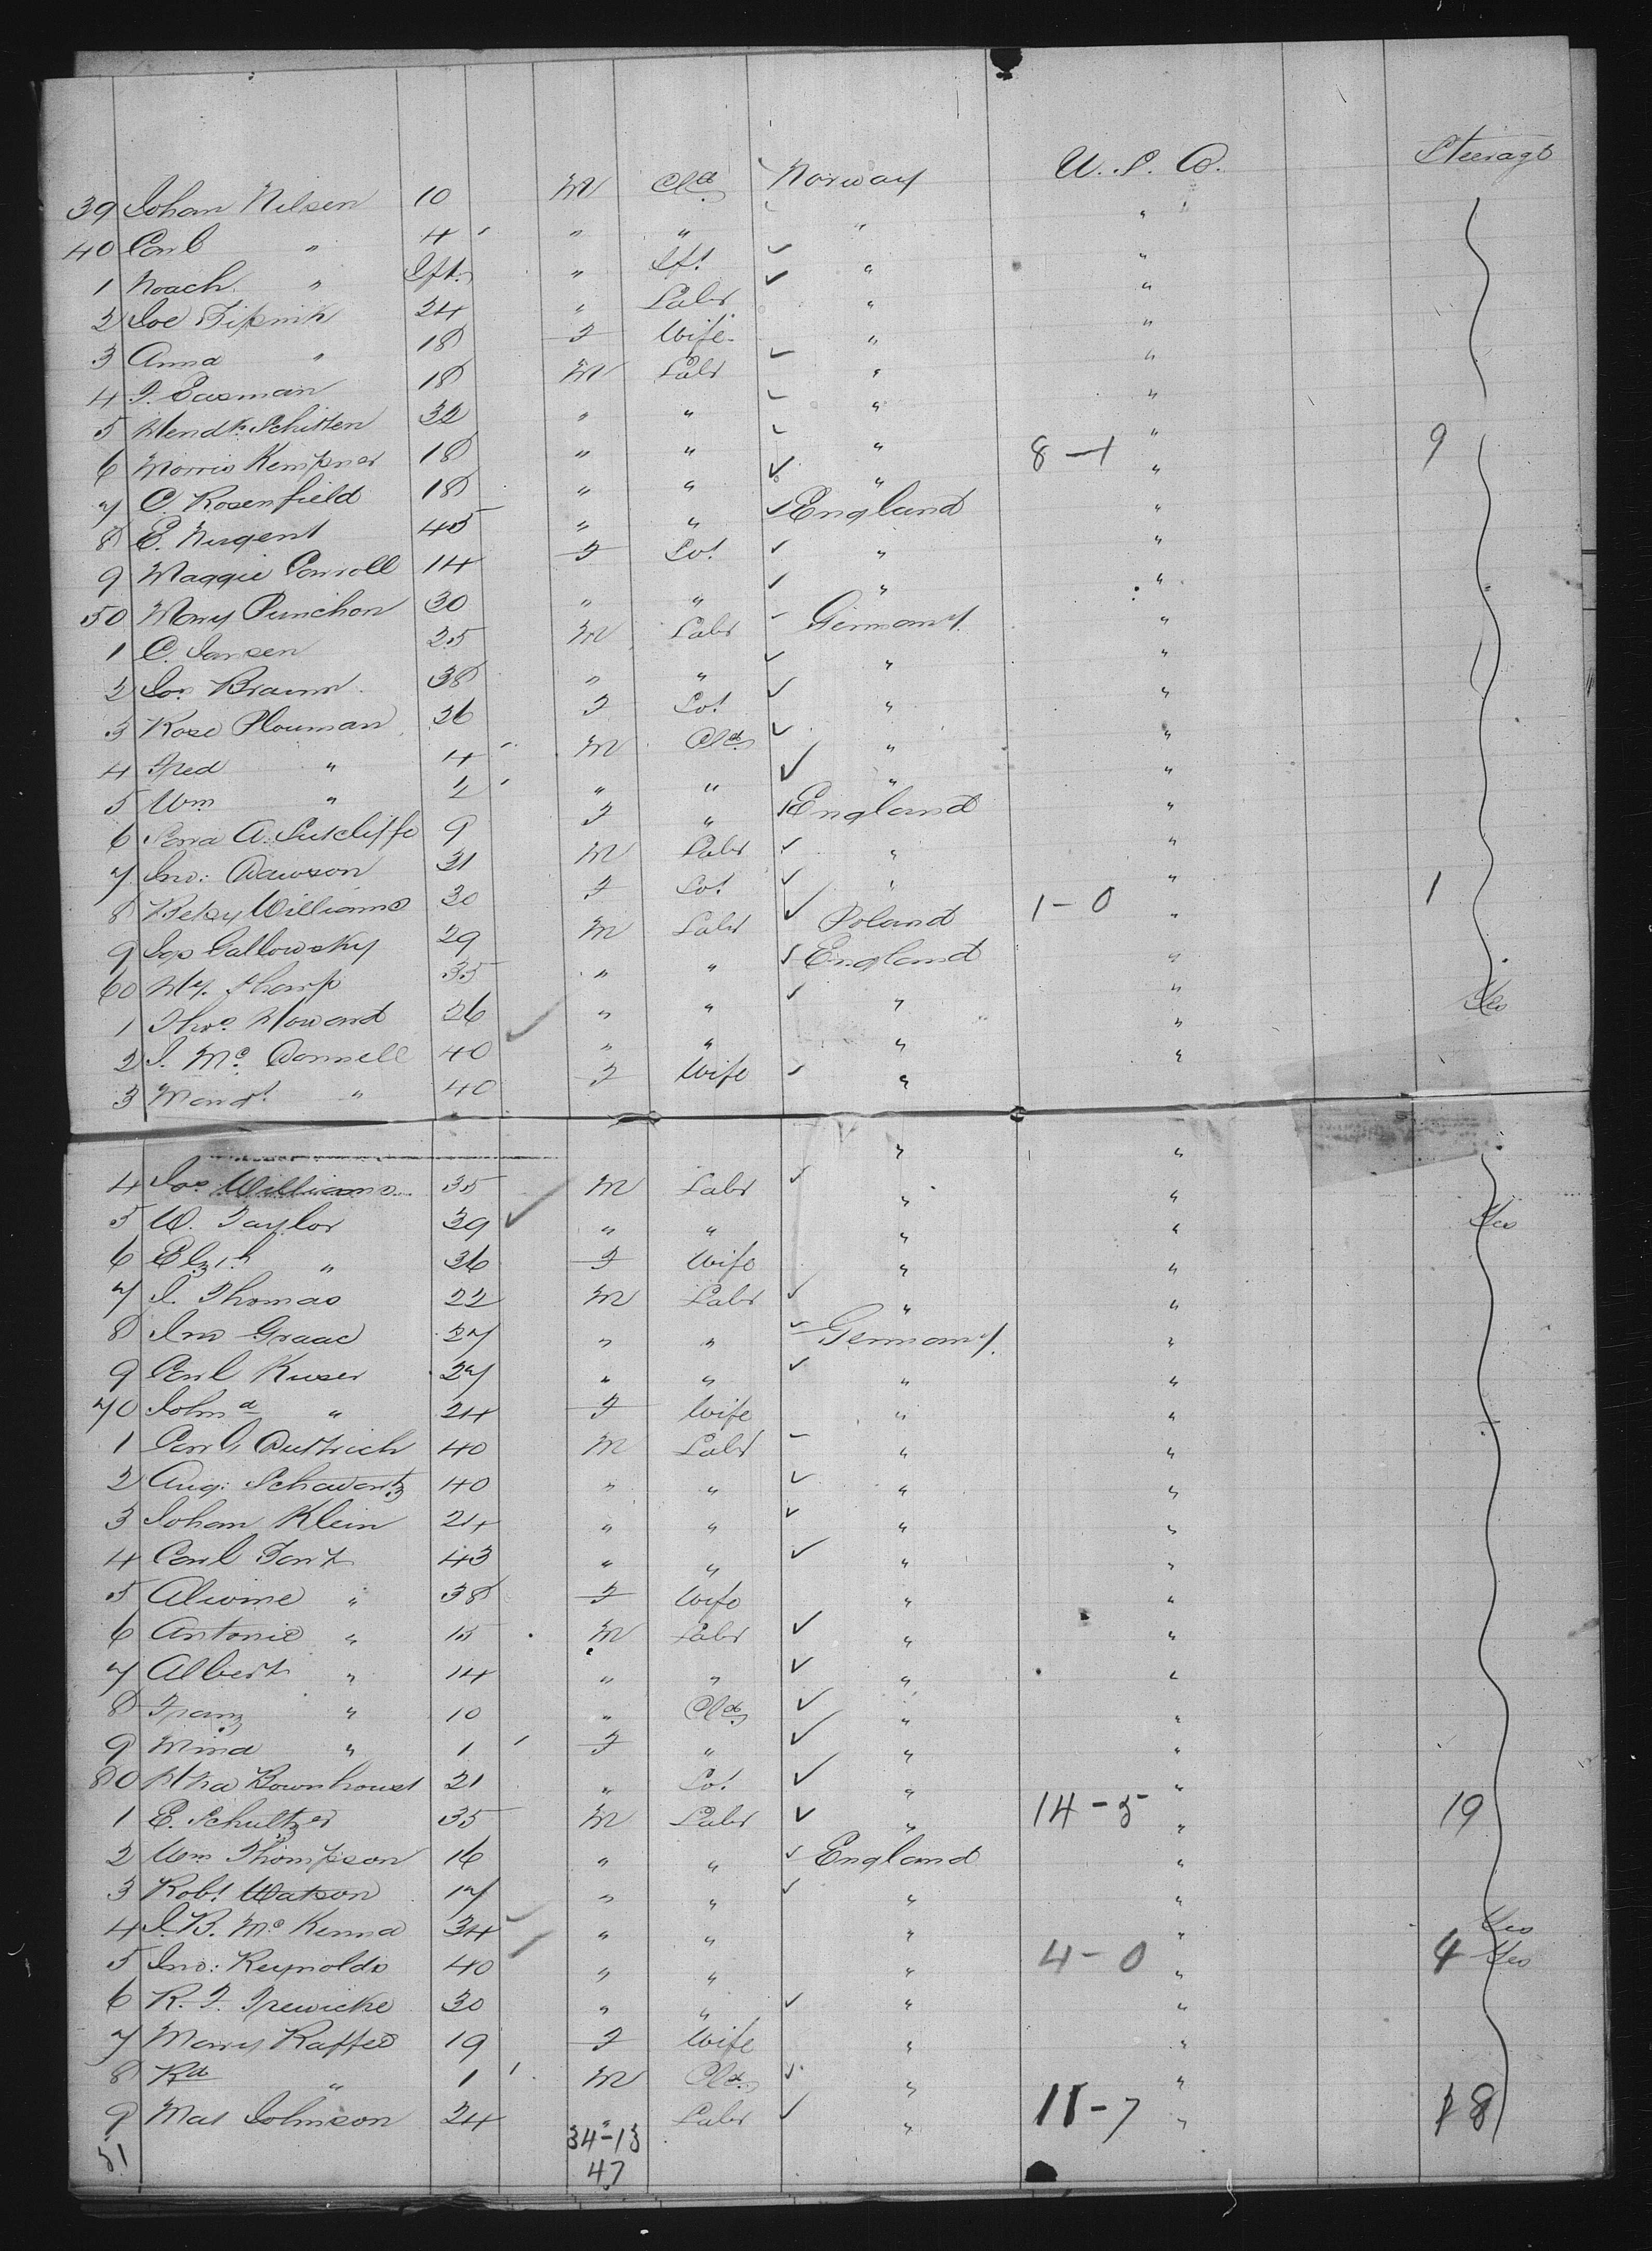 Norway U. S. A. Steerage
39 Johan Nilsen 10 M Cld "
40 Carl " 4 " " " "
1 Noach " Ift. " Ift " "
2 Joe Tipnik 24 " Labr " "
3 Anna " 18 F Wife " "
4 J. Easman 18 M Labr " "
5 Hendk Schitten 32 " " " "
6 Morris Kempner 18 " " " 8-1 " 9
7 C. Rosenfield 18 " " " "
8 E. Nugent 45 " " England "
9 Maggie Carroll 14 F Spt " "
50 Mary Punchon 30 " " " "
1 C. Jansen 25 M Labr Germany "
2 Jos Braun 38 " " " "
3 Rose Plouman 26 F Spt " "
4 Fred " 4 M Cld " "
5 Wm " 2 " " " "
6 A. Sutcliffe 9 F " England "
7 Jno: Dawson 31 M Labr " "
8 Betsy Williams 30 F Spt " " 1
9 Jos Gallowsky 29 M Labr Poland 1-0 "
60 Hy. Sharp 35 " " England "
1 Thos Howard 26 " " " " Yes
2 J. Mc Donnell 40 " " " "
3 Margt " 40 F Wife " "
4 Jos Williams 35 M Labr " "
5 W. Taylor 39 " " " " Yes
6 Elzth " 36 F Wife " "
7 J. Thomas 22 M Labr " "
8 Jno Graac 27 " " Germany "
9 Carl Kuser 27 " " " "
70 Johna " 24 F Wife " "
1 Carl Duttrich 40 M Labr " "
2 Aug: Schawartz 40 " " " "
3 Johan Klein 24 " " " "
4 Carl Tantz 43 " " " "
5 Alwine " 38 F Wife " "
6 Antonie " 15 M Labr " "
7 Albert " 14 " " " "
8 Franz " 10 " Cld " "
9 Mina " 1 F " " "
80 21 " Spt " "
1 E. Schultzer 35 M Labr " 14-5 " 19
2 Wm Thompson 16 " " England "
3 Robt Watson 17 " " " "
4 J. B. Mc Kenna 34 " " " " Yes
5 Jno: Reynolds 40 " " " 4-0 " 4 Yes
6 R. F. Trewicke 30 " " " "
7 Mary Raffed 19 F Wife " "
8 Rd " 1 M Cld " "
9 Mat Johnson 24 " Labr " 11-7 " 18
51 34-13
47